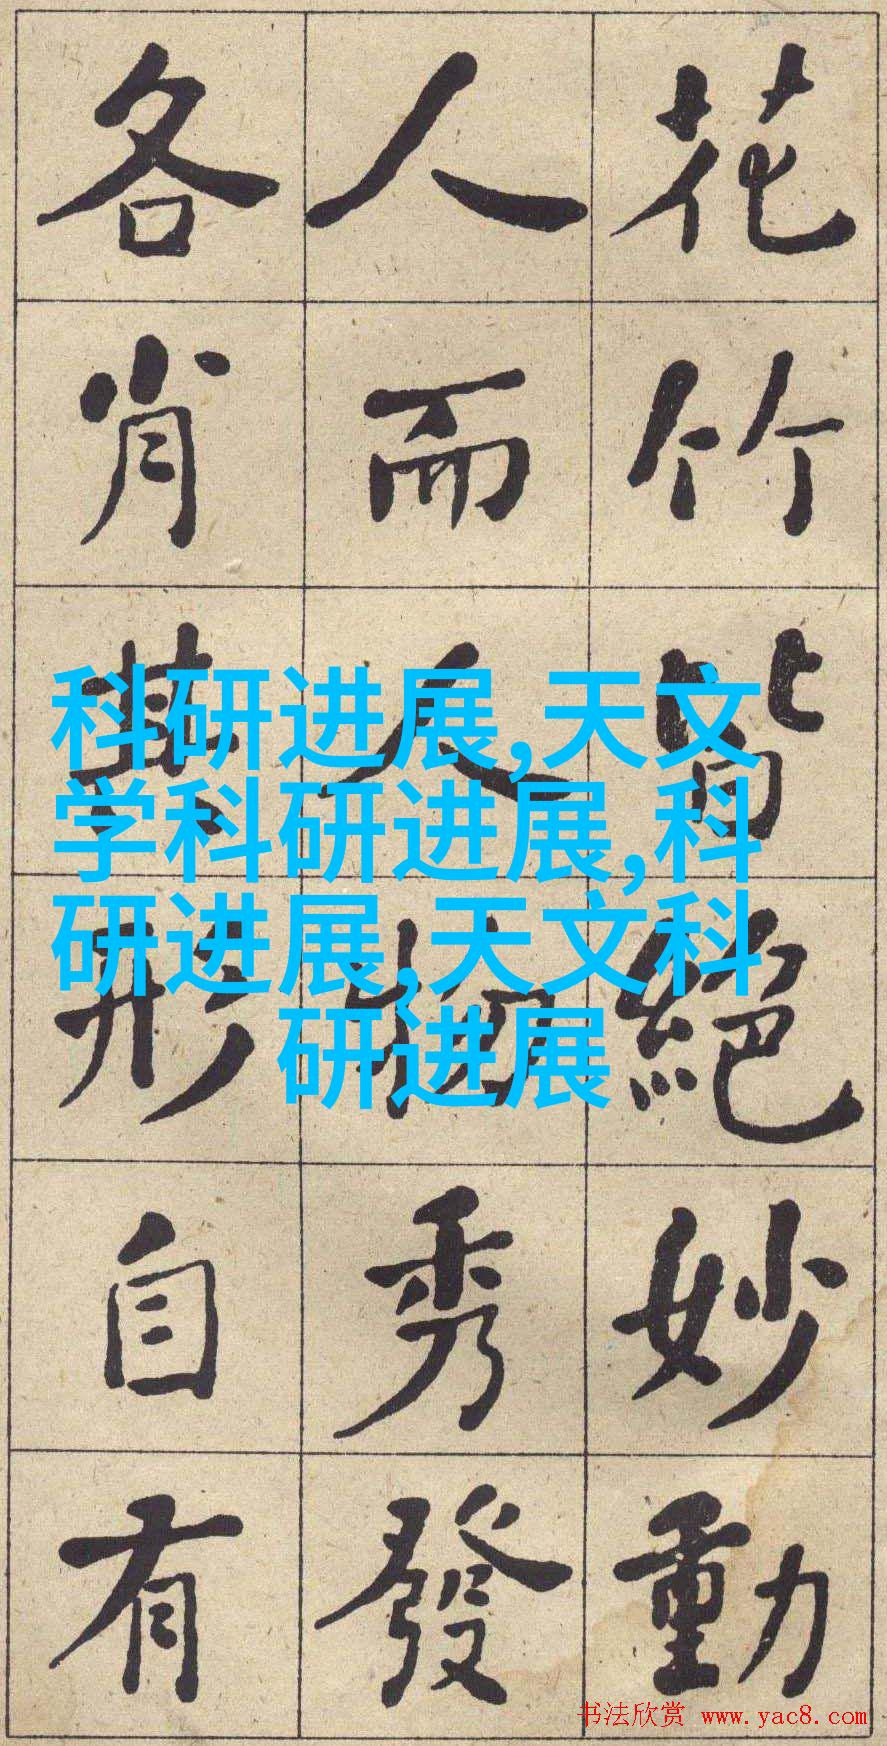 花竹皆絕妙動
人而人物秀發
各肖其形自有
科研进展,天文
学科研进展,科
研进展,天文科
研进展
书法欣赏 www.yac8.com